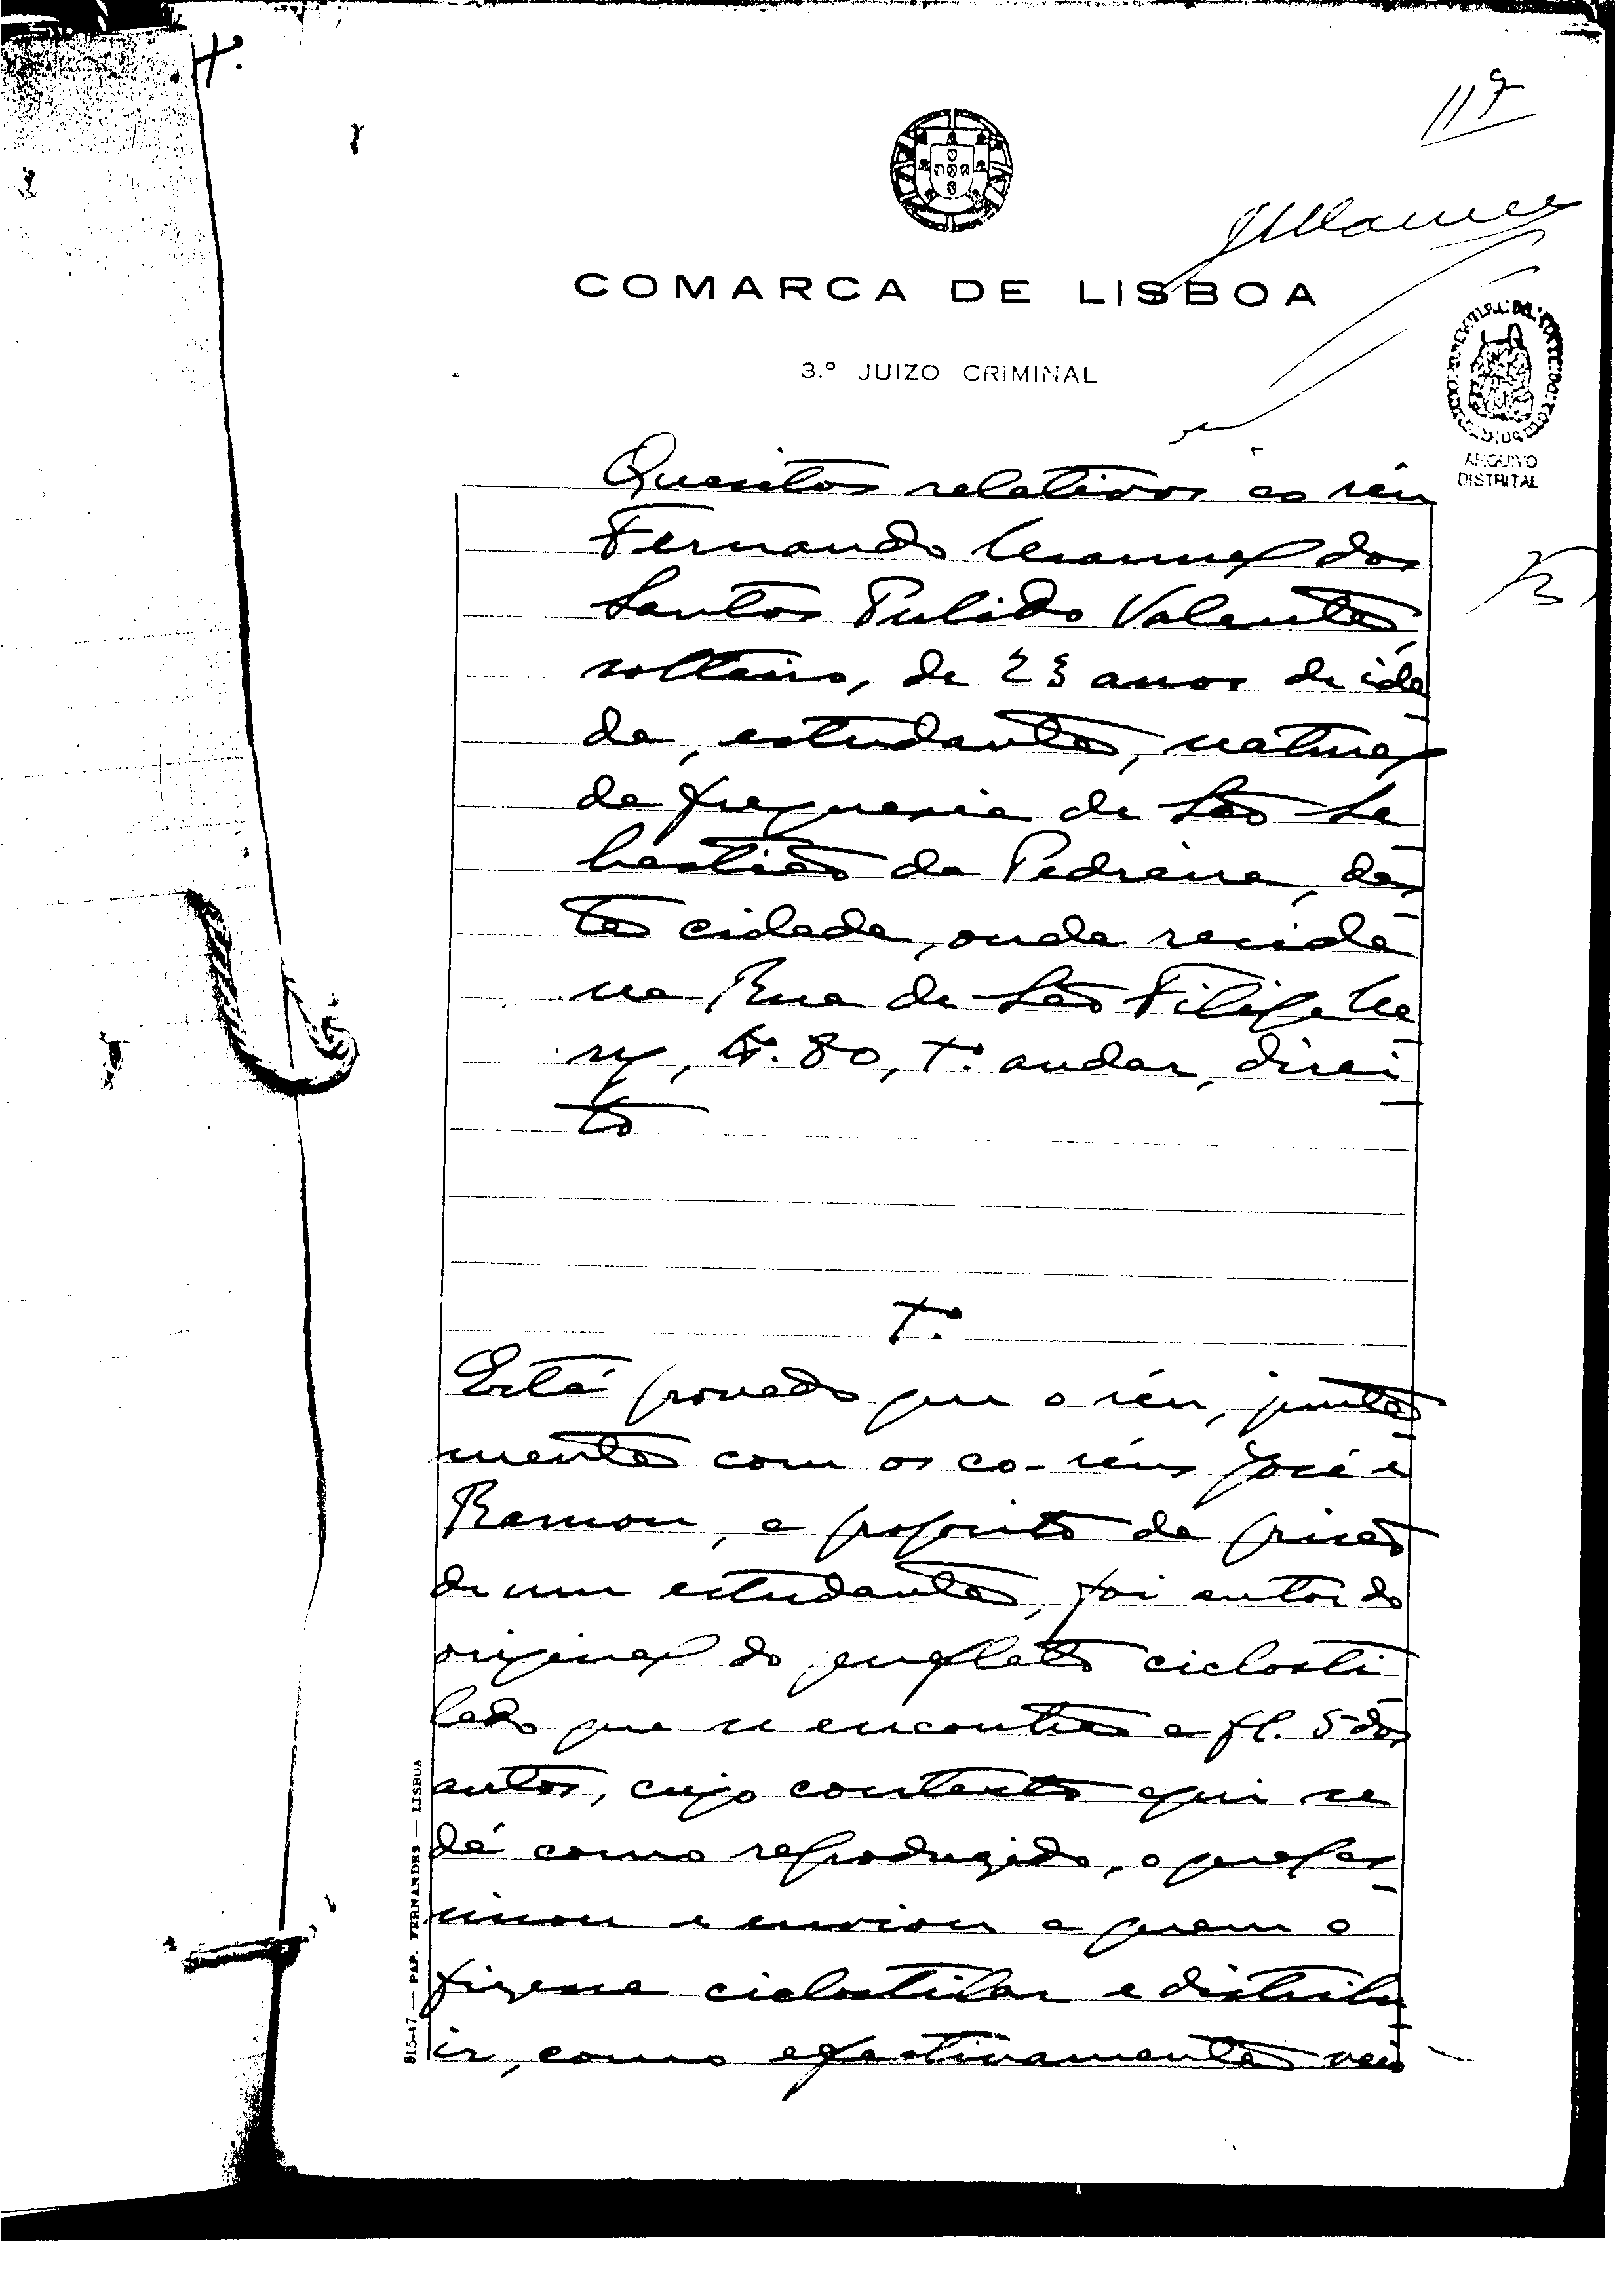 119
COMARCA DE LISBOA
3.º JUIZO CRIMINAL
ARQUIVO
DISTRITAL
Quesitos relativos ao réu
Fernando Manuel dos
Santos Pulido Valente,
solteiro, de 23 anos de ida
de, estudante, natural
da freguesia de São Se
bastião da Pedreira, des
ta cidade, onde reside
na Rua de São Filipe Ne
ry, n.º 80, 1.º andar, direi
to
1.º
Está provado que o réu, junta
mente com os co-réus José e
Ramon, a proposito da prisão
de um estudante, foi autor do
original do panfleto ciclosti
lado que se encontra a fl. 5 dos
autos, cujo contexto aqui se
dá como reproduzido, o qual as
sinou e enviou a quem o
fizesse ciclostilar e distribu
ir, como efectivamente veio
815-47 — PAP. FERNANDES — LISBOA